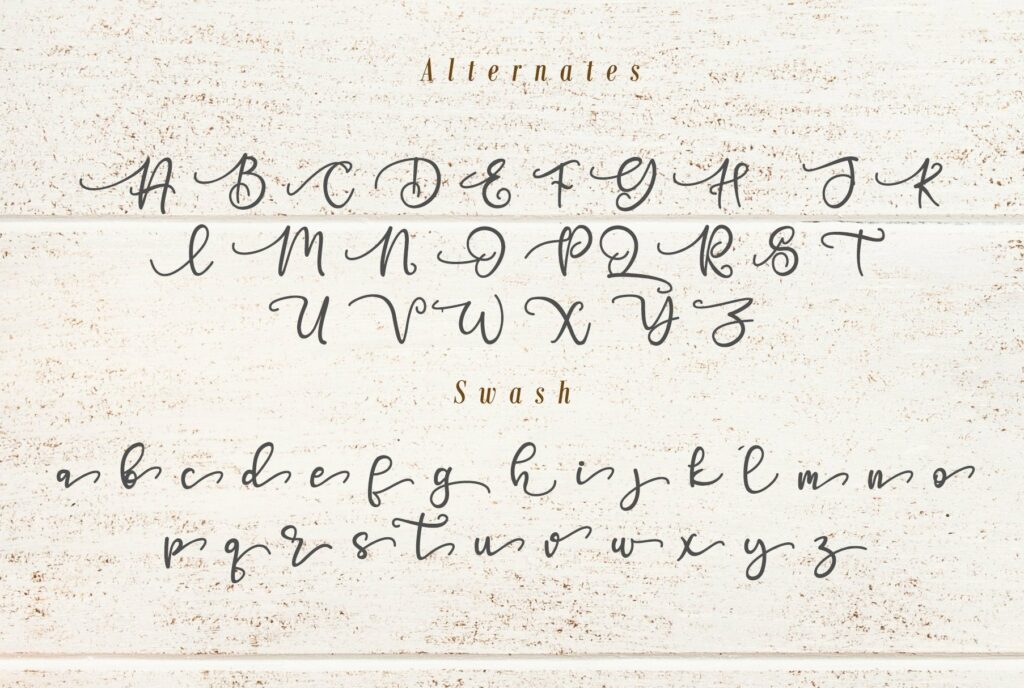 Alternates
A B C D E F G H J K
L M N O P Q R S T
U V W X Y Z
Swash
a b c d e f g h i j k l m n o
p q r s t u v w x y z